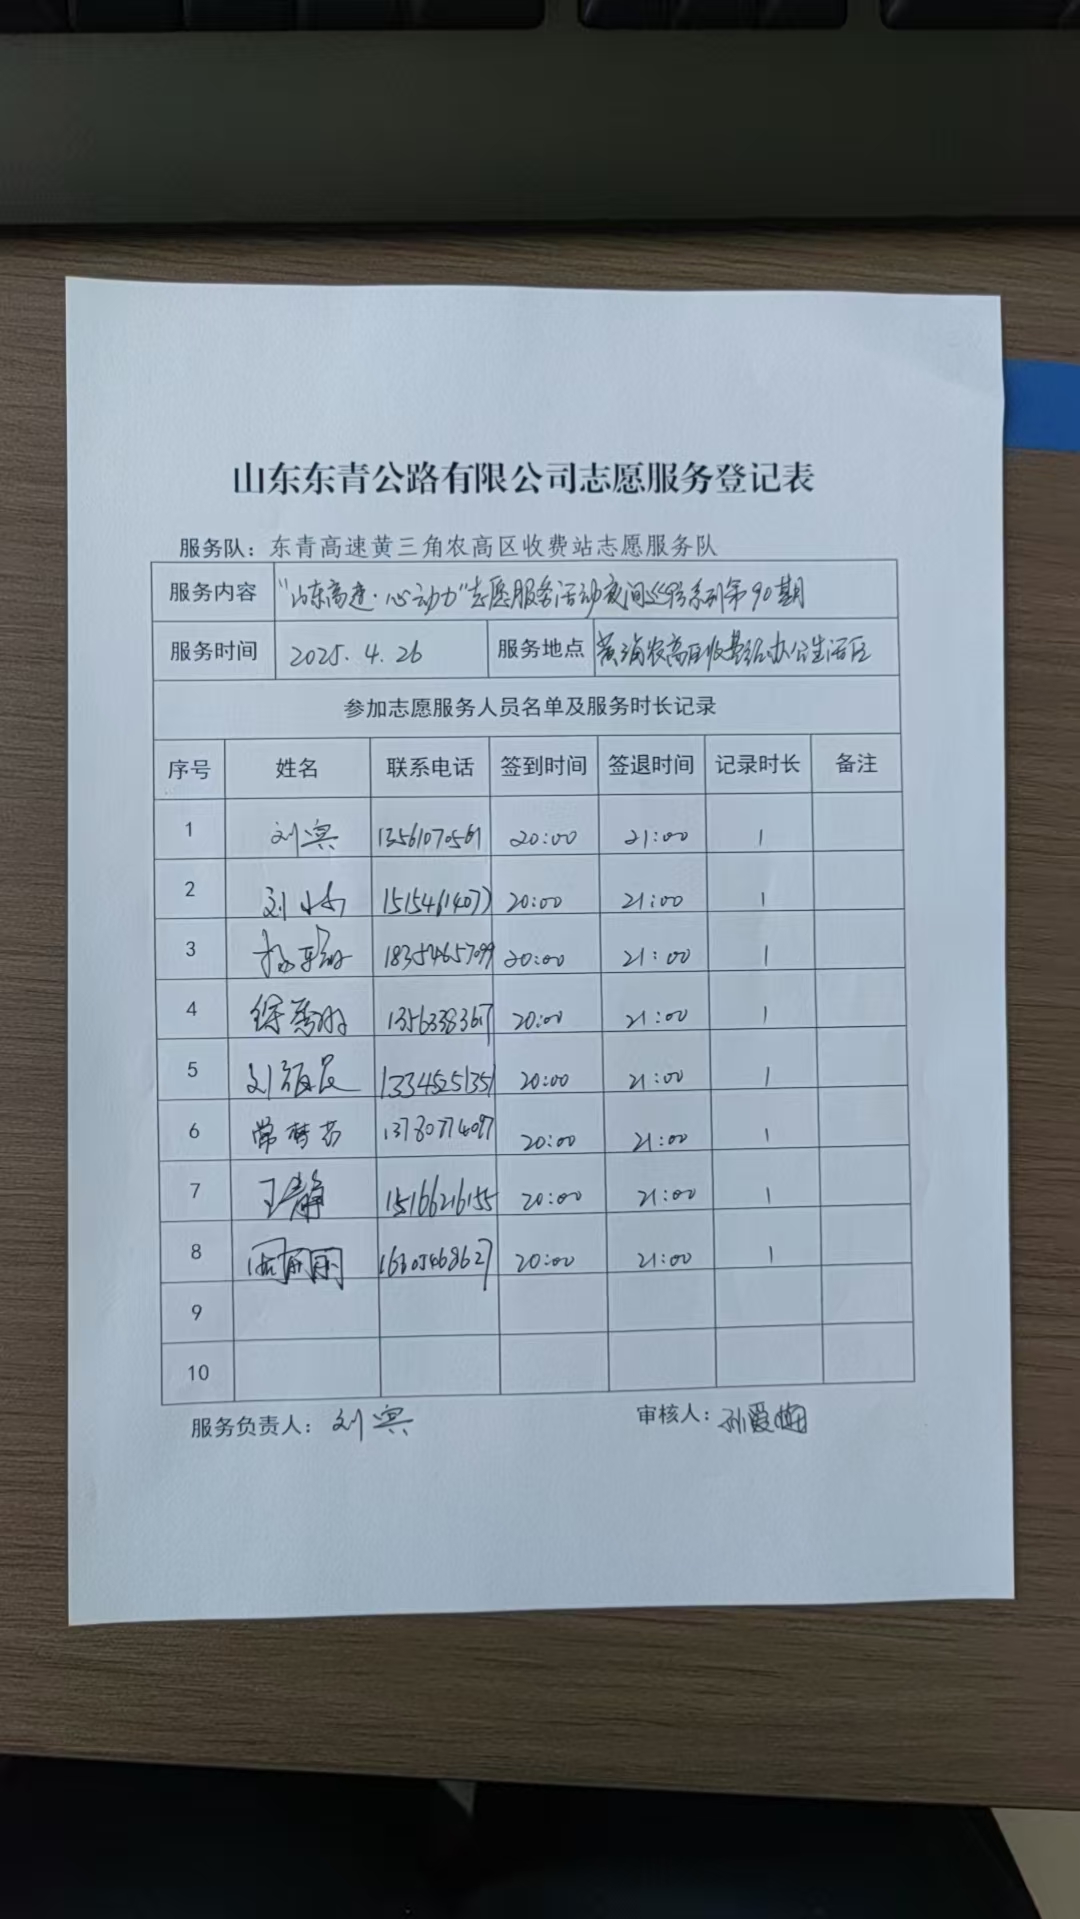 山东东青公路有限公司志愿服务登记表
服务队：东青高速黄三角农高区收费站志愿服务队
服务内容 "山东高速·心动力"志愿服务活动夜间巡察系列第90期
服务时间 2025.4.26 服务地点 黄三角农高区收费站办公生活区
参加志愿服务人员名单及服务时长记录
序号 姓名 联系电话 签到时间 签退时间 记录时长 备注
1 刘宾 13561070561 20:00 21:00 1
2 刘 15154614077 20:00 21:00 1
3 18354657099 20:00 21:00 1
4 徐秀 13563383617 20:00 21:00 1
5 刘 13345251351 20:00 21:00 1
6 常梦 13780774097 20:00 21:00 1
7 王静 15166216155 20:00 21:00 1
8 丽丽 20:00 21:00 1
9
10
服务负责人：刘宾 审核人：孙爱梅